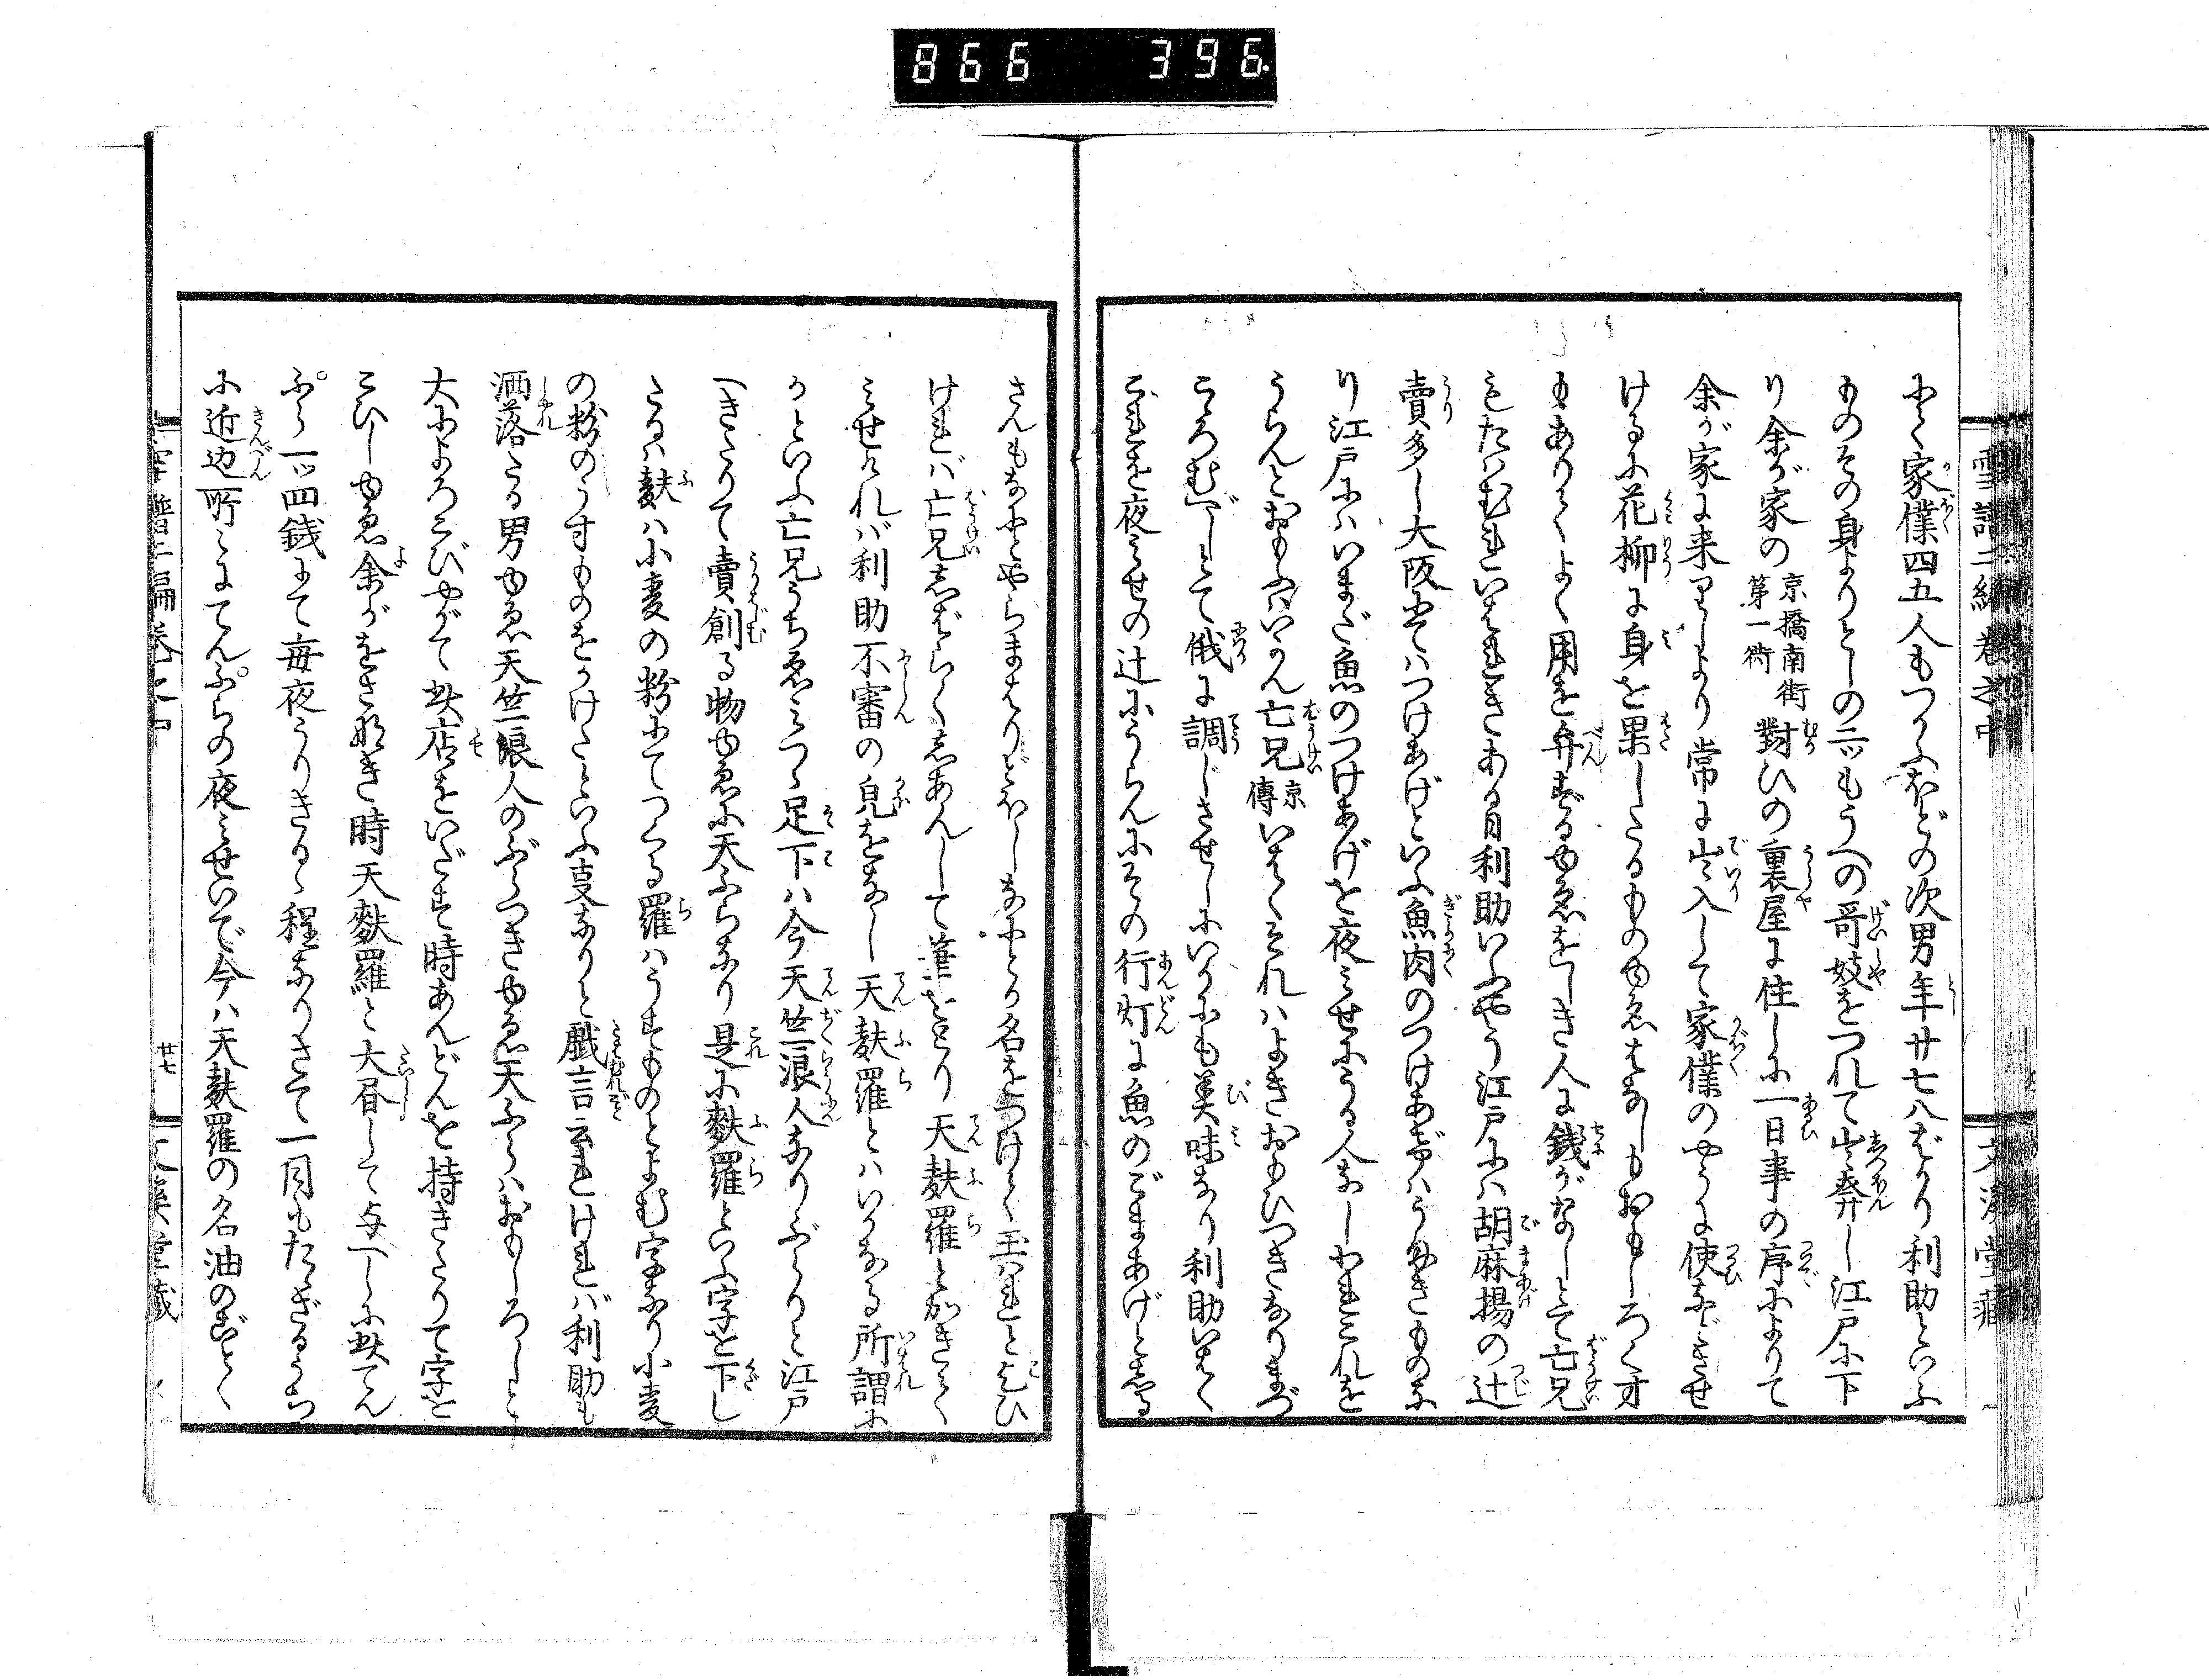 866 396
雪譜二編卷之中
文溪堂藏
にて家僕四五人もつかふほどの次男年廿七八ばかり利助といふ
ものその身よりとしの二ッもうへの哥妓をつれて出奔し江戸に下
り余が家の京橋南街第一衖對ひの裏屋に住しに一日事の序によりて
余が家に来りしより常に出入して家僕のやうに使などさせ
けるに花柳に身を果したるものゆゑはなしもおもしろくす
もありてよく用を弁ずるゆゑをしき人に銭がなしとて亡兄
もたはむれいはれきある日利助いふやう江戸には胡麻揚の辻
賣多し大阪にてはつけあげといふ魚肉のつけあげはうまきものな
り江戸にはいまだ魚のつけあげを夜みせにうる人なしわれこれを
うらんとおもふはいかん亡兄京傳いはくそれはよきおもひつきなりまづ
こゝろむべしとて俄に調じさせしにいかにも美味なり利助いはく
これを夜みせの辻にうらんにその行灯に魚のごまあげとしる
さんもなにとやらまはりどほしなにとか名をつけてく玉はれとこひ
ければ亡兄しばらくしあんして筆をとり天麸羅とかきて
みせければ利助不審の㒵をなし天麸羅とはいかなる所謂に
かといふ亡兄うちゑみつゝ足下は今天竺浪人なりぶらりと江戸
へきたりて賣創る物ゆゑに天ふらなり是に麸羅といふ字を下し
たるは麸は小麦の粉にてつくる羅はうすものとよむ字なり小麦
の粉のうすものをかけたといふ支なりと戯言云れければ利助も
洒落たる男ゆゑ天竺浪人のぶらつきゆゑ天ふらはおもしろしと
大によろこびやがて此店をいだす時あんどんを持きたりて字を
こひしゆゑ余がをさなき時天麸羅と大㫺して与へしに此てん
ぷら一ッ四銭にて毎夜うりきるゝ程なりさて一月もたゝざるうち
に近辺所〻にてんぷらの夜みせいで今は天麸羅の名油のごとく
廿七